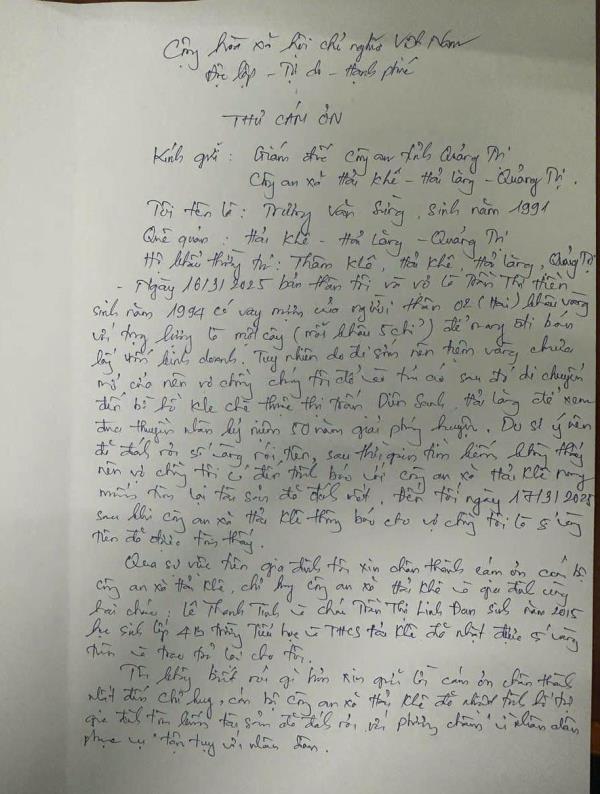 Cộng hòa xã hội chủ nghĩa Việt Nam
Độc lập - Tự do - Hạnh phúc
THƯ CÁM ƠN
Kính gửi : Giám đốc Công an tỉnh Quảng Trị
Công an xã Hải Khê - Hải Lăng - Quảng Trị.
Tôi tên là : Trương Văn Sừng, sinh năm 1991
Quê quán : Hải Khê - Hải Lăng - Quảng Trị
Hộ khẩu thường trú : Thâm Khê, Hải Khê, Hải Lăng, Quảng Trị
- Ngày 16/3/2025 bản thân tôi và vợ là Trần Thị Hiền
sinh năm 1994 có vay mượn của người thân 02 (Hai) khâu vàng
với trọng lượng là một cây (mỗi khâu 5 chỉ) để mang đi bán
lấy vốn kinh doanh. Tuy nhiên do đi sớm nên tiệm vàng chưa
mở cửa nên vợ chồng chúng tôi để vào túi áo sau đó di chuyển
đến bờ hồ thuộc thị trấn Diên Sanh, Hải Lăng để xem
đua thuyền nhân kỷ niệm 50 năm giải phóng huyện. Do sơ ý nên
đã đánh rơi số vàng nói trên, sau thời gian tìm kiếm không thấy
nên vợ chồng tôi có đến trình báo với công an xã Hải Khê mong
muốn tìm lại tài sản đã đánh mất. Đến tối ngày 17/3/2025
sau khi công an xã Hải Khê thông báo cho vợ chồng tôi là số vàng
trên đã được tìm thấy.
Qua sự việc trên gia đình tôi xin chân thành cám ơn cán bộ
công an xã Hải Khê, chỉ huy công an xã Hải Khê và gia đình cùng
hai cháu : Lê Thanh Tình và cháu Trần Thị Linh Đan sinh năm 2015
học sinh lớp 4B trường Tiểu học và THCS Hải Khê đã nhặt được số vàng
trên và trao trả lại cho tôi.
Tôi không biết nói gì hơn xin gửi lời cám ơn chân thành
nhất đến chỉ huy, cán bộ công an xã Hải Khê đã nhiệt tình hỗ trợ
gia đình tìm kiếm tài sản đã đánh rơi với phương châm "vì nhân dân
phục vụ" tận tụy với nhân dân.